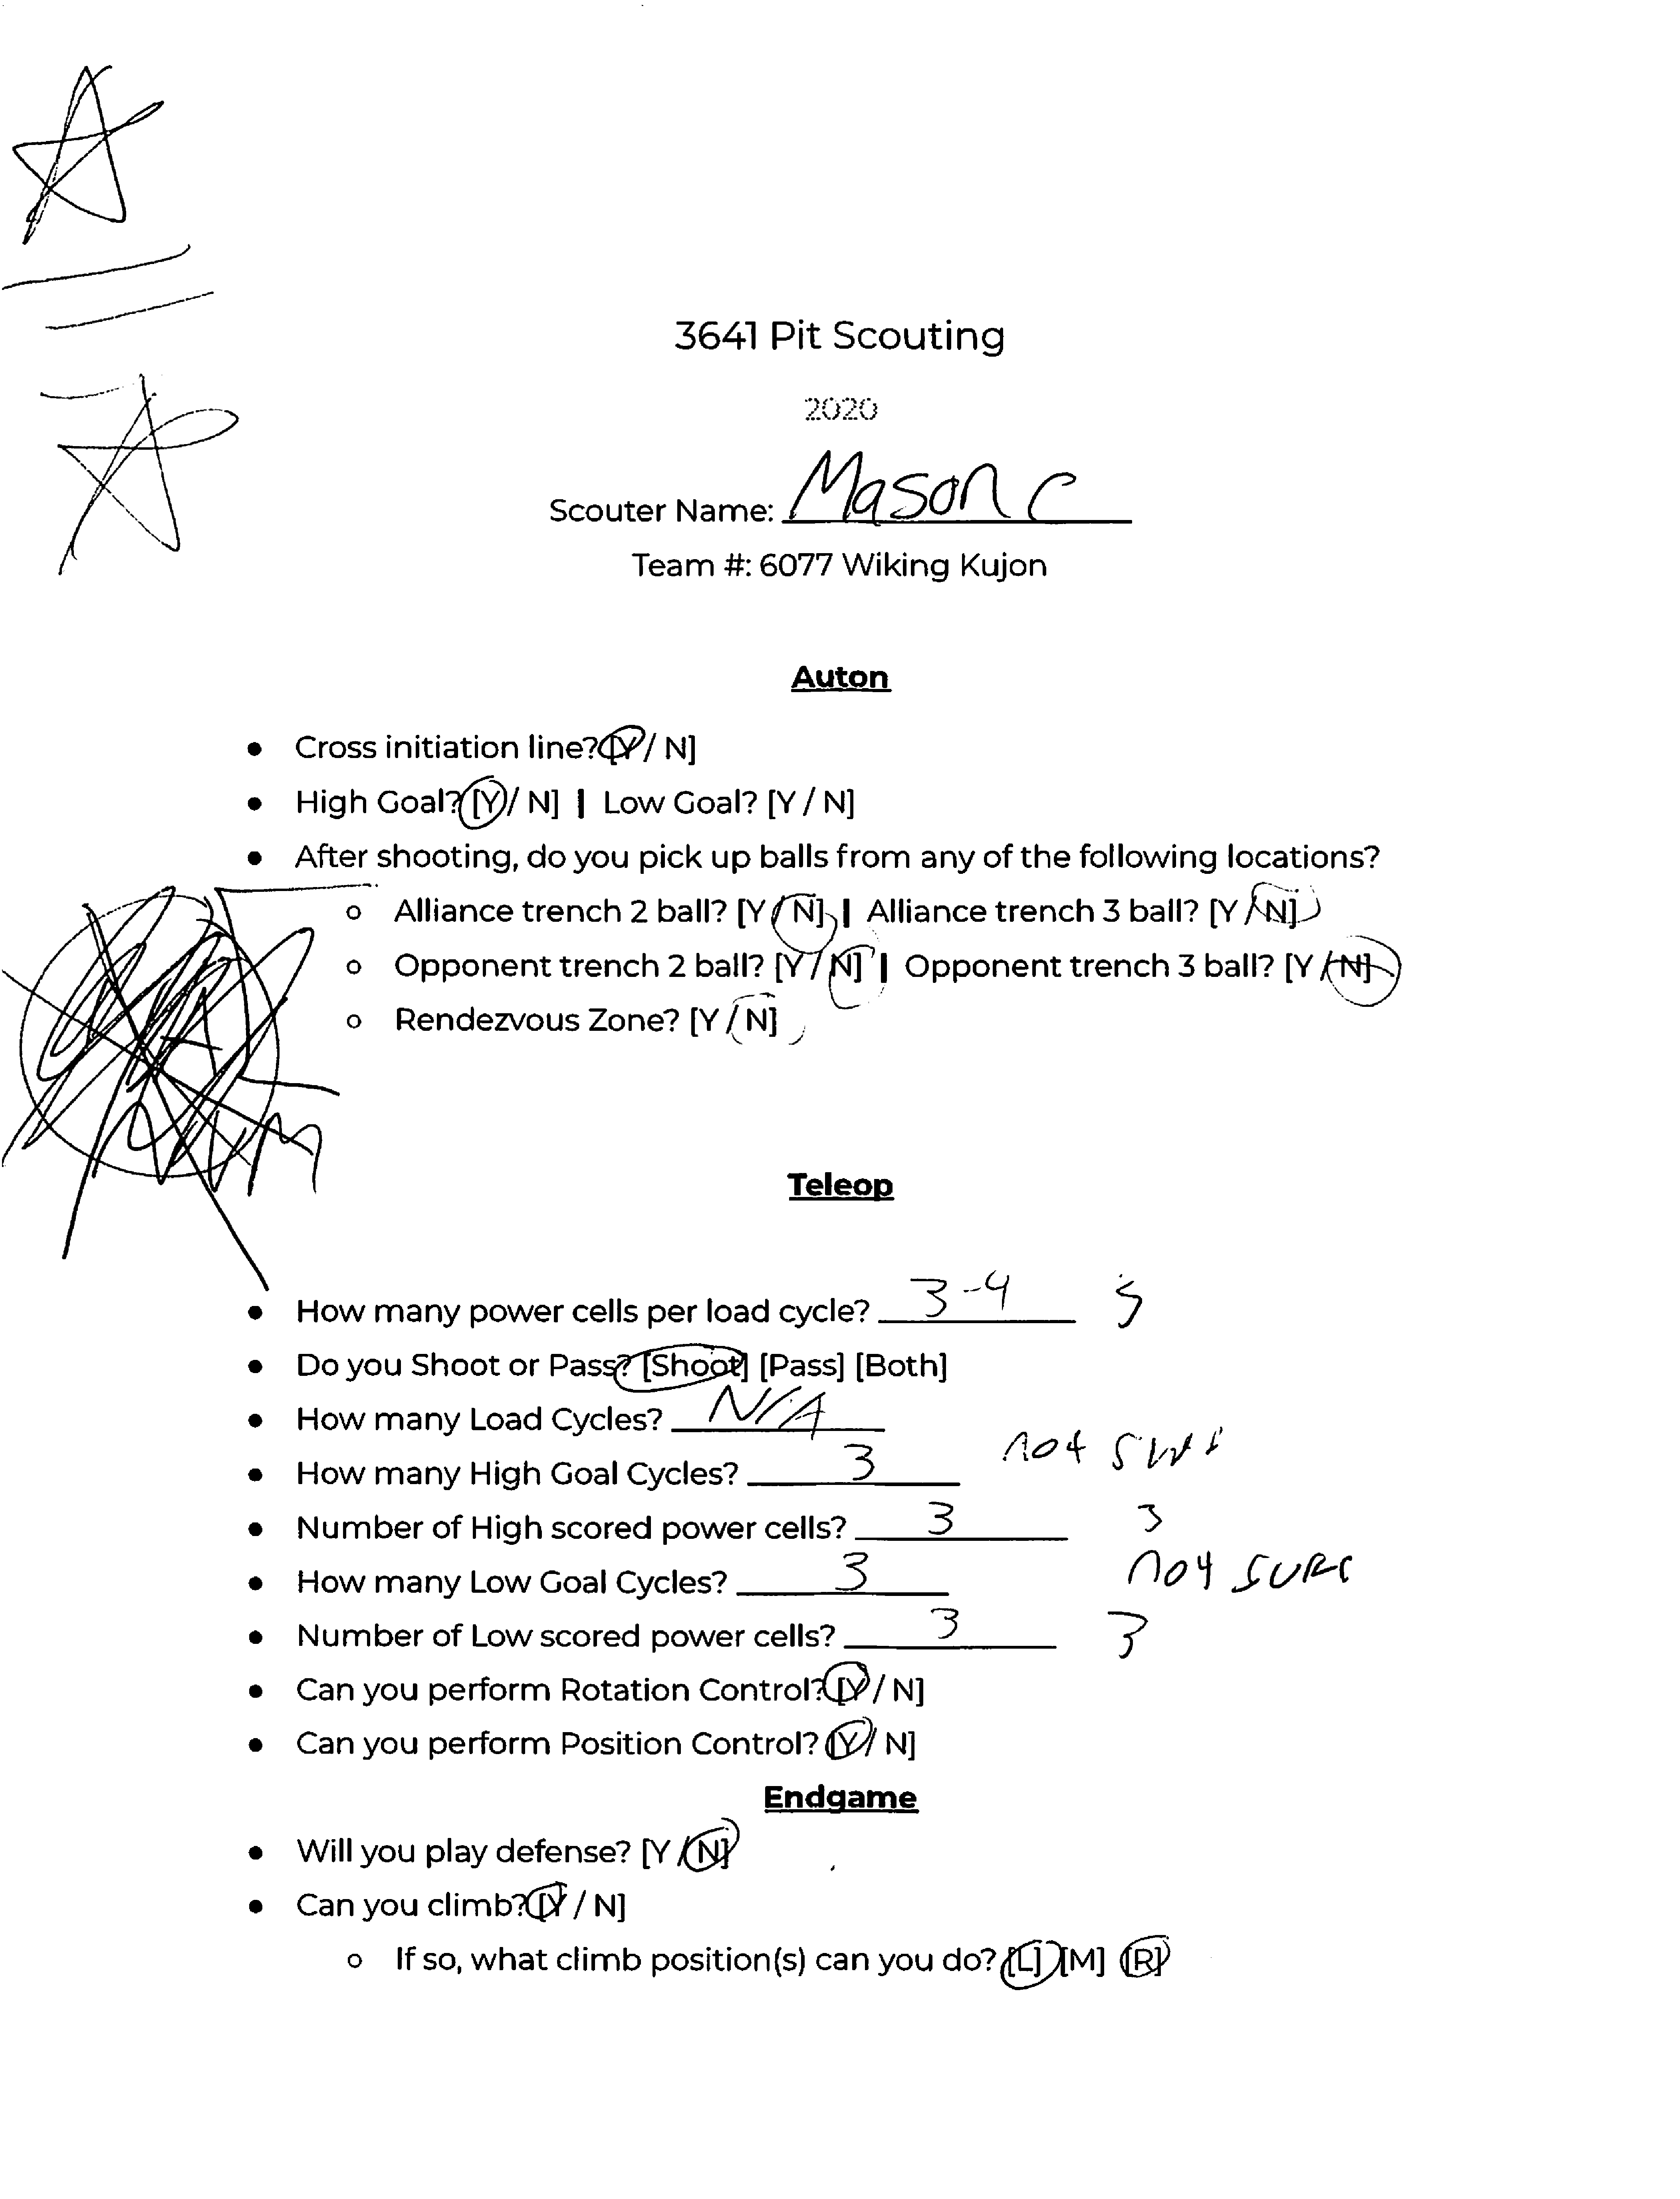 3641 Pit Scouting
2020
Scouter Name: Mason C
Team #: 6077 Wiking Kujon
Auton
• Cross initiation line? [Y / N]
• High Goal? [Y / N] | Low Goal? [Y / N]
• After shooting, do you pick up balls from any of the following locations?
○ Alliance trench 2 ball? [Y / N] | Alliance trench 3 ball? [Y / N]
○ Opponent trench 2 ball? [Y / N] | Opponent trench 3 ball? [Y / N]
○ Rendezvous Zone? [Y / N]
Teleop
• How many power cells per load cycle? 3-4 5
• Do you Shoot or Pass? [Shoot] [Pass] [Both]
• How many Load Cycles? N/A
• How many High Goal Cycles? 3 not sure
• Number of High scored power cells? 3 3
• How many Low Goal Cycles? 3 not sure
• Number of Low scored power cells? 3 3
• Can you perform Rotation Control? [Y / N]
• Can you perform Position Control? [Y / N]
Endgame
• Will you play defense? [Y / N]
• Can you climb? [Y / N]
○ If so, what climb position(s) can you do? [L] [M] [R]